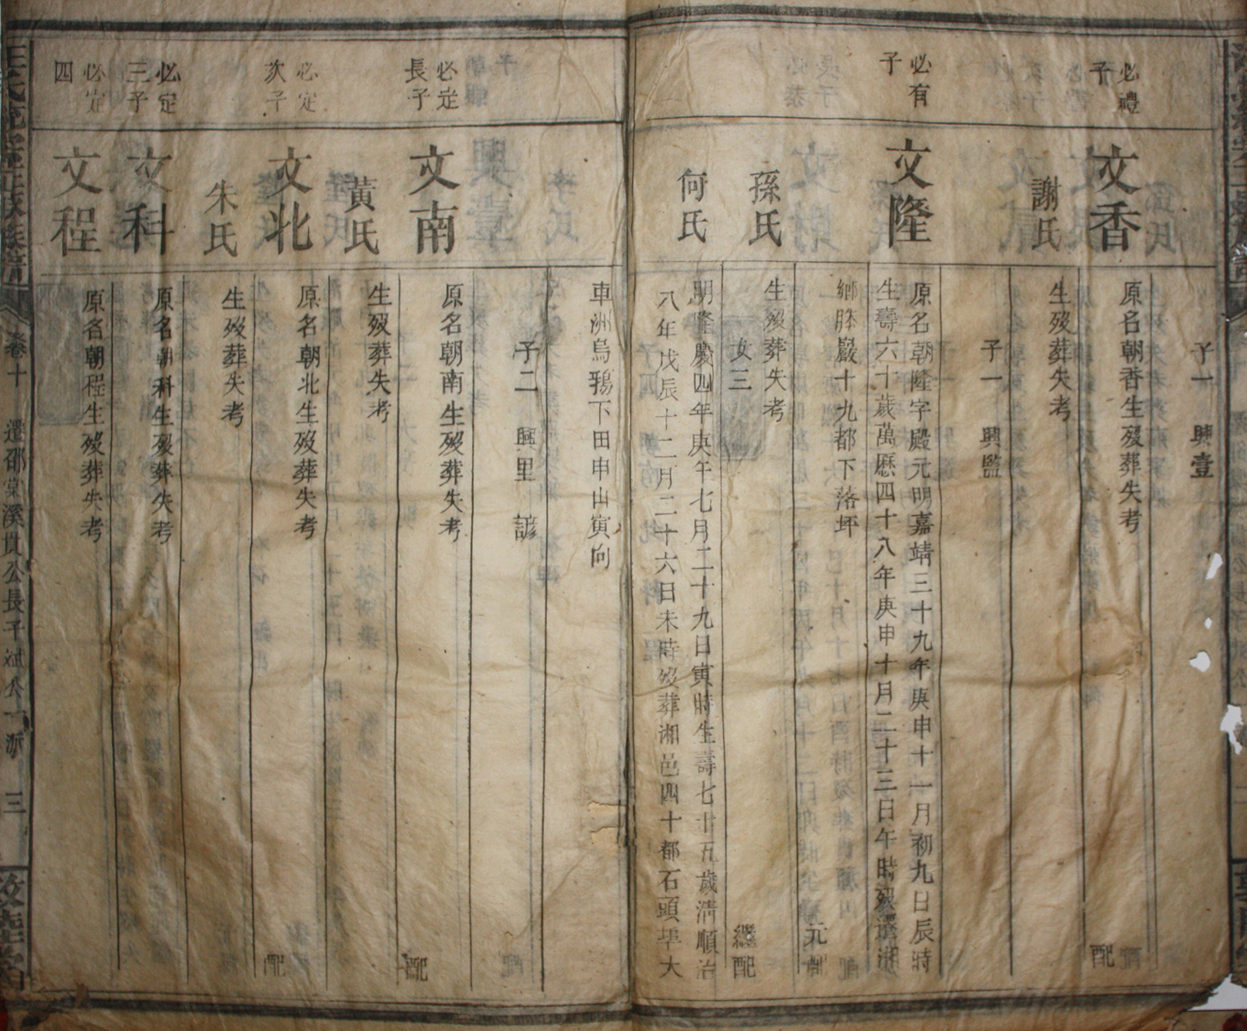 必禮
子
文香
原名朝香生歿葬失考
配
謝氏
生歿葬失考
子一 興壹
必有
子
文隆
原名朝隆字殿元明嘉靖三十九年庚申十一月初九日辰時
生壽六十歲萬曆四十八年庚申十月二十三日午時歿葬湘
鄉勝嚴十九都下落坪
元配
孫氏
生歿葬失考
子一 興監
女三
繼配
何氏
明隆慶四年庚午七月二十九日寅時生壽七十五歲淸順治
八年戊辰十二月二十六日未時歿葬湘邑四十都石頭埠大
車洲烏鴉下田申山寅向
必定
長子
文南
原名朝南生歿葬失考
配
黃氏
生歿葬失考
子二 興里 諺
必定
次子
文北
原名朝北生歿葬失考
配
朱氏
生歿葬失考
必定
三子
文科
原名朝科生歿葬失考
必定
四
文程
原名朝程生歿葬失考
卷十
三